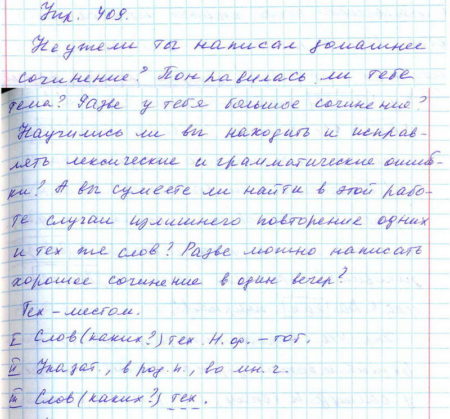 Упр. 409.
Неужели ты написал домашнее
сочинение? Понравилась ли тебе
тема? Разве у тебя большое сочинение?
Научились ли вы находить и исправ-
лять лексические и грамматические ошиб-
ки? А вы сумеете ли найти в этой рабо-
те случаи излишнего повторение одних
и тех же слов? Разве можно написать
хорошое сочинение в один вечер?
Тех - местоим.
I Слов (каких?) тех. Н.ф. - тот.
II Указат., в род. п., во мн. ч.
III Слов (каких?) тех.